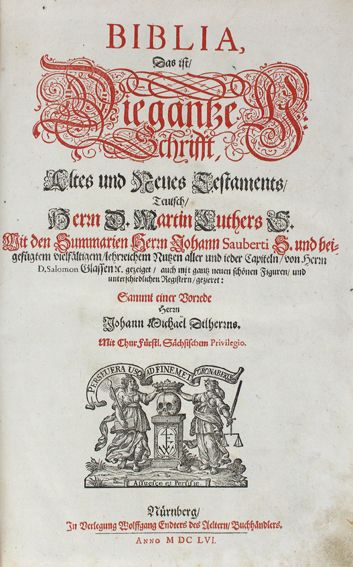 BIBLIA,
Das ist/
Die gantze H.
Schrifft,
Altes und Neues Testaments/
Teutsch/
Herrn D. Martin Luthers S.
Mit den Summarien Herrn Johann Sauberti S. und bei-
gefügtem vielfältigem/lehrreichem Nutzen aller und ieder Capiteln/von Herrn
D. Salomon Glassen ꝛc. gezeiget/ auch mit gantz neuen schönen Figuren/ und
unterschiedlichen Registern/ gezieret:
Sammt einer Vorrede
Herrn
Johann Michael Dilherrns.
Mit Chur Fürstl. Sächsischem Privilegio.
PERSEVERA USQ AD FINEM ET CORONABERIS
Nürnberg/
In Verlegung Wolffgang Endters des Aeltern/ Buchhändlers.
ANNO M DC LVI.